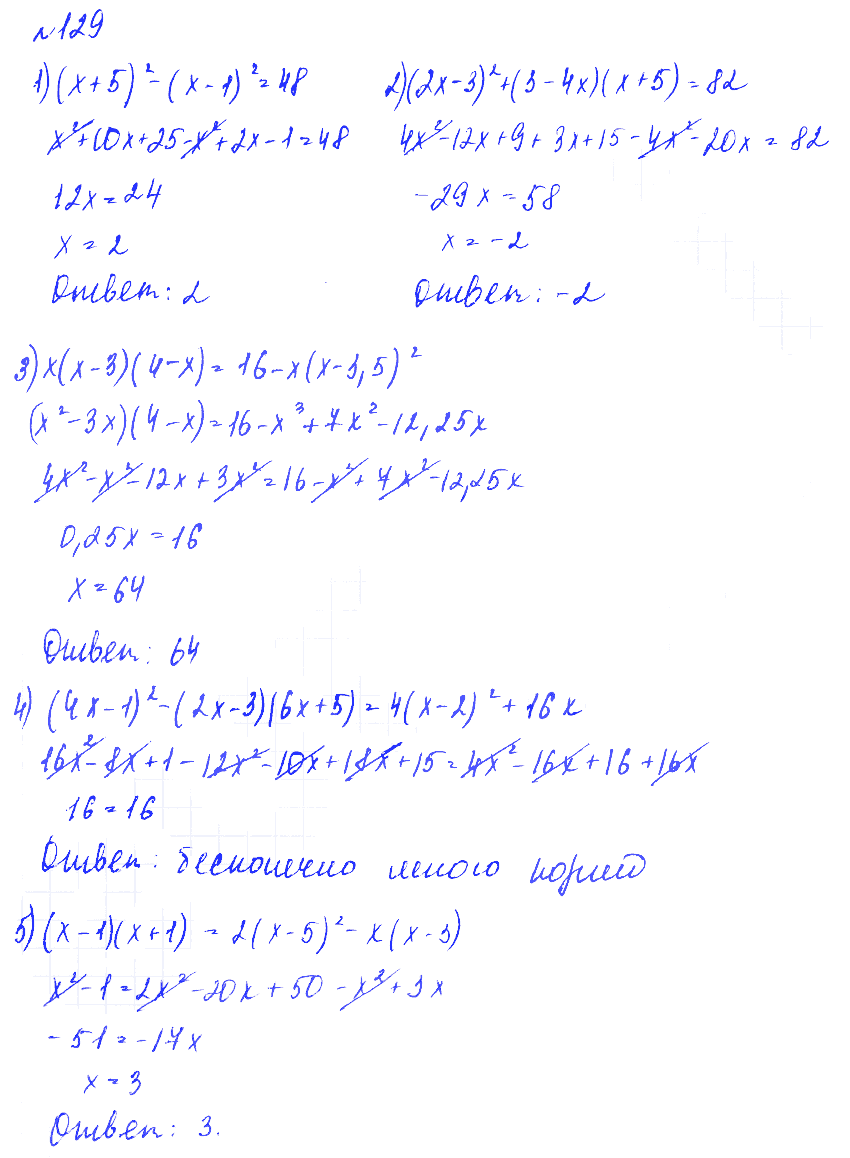 №129
1) (x+5)² - (x-1)² = 48
x² + 10x + 25 - x² + 2x - 1 = 48
12x = 24
x = 2
Ответ: 2
2) (2x-3)² + (3-4x)(x+5) = 82
4x² - 12x + 9 + 3x + 15 - 4x² - 20x = 82
-29x = 58
x = -2
Ответ: -2
3) x(x-3)(4-x) = 16 - x(x-3,5)²
(x² - 3x)(4-x) = 16 - x³ + 7x² - 12,25x
4x² - x² - 12x + 3x² = 16 - x² + 7x² - 12,25x
0,25x = 16
x = 64
Ответ: 64
4) (4x-1)² - (2x-3)(6x+5) = 4(x-2)² + 16x
16x² - 8x + 1 - 12x² - 10x + 18x + 15 = 4x² - 16x + 16 + 16x
16 = 16
Ответ: бесконечно много корней
5) (x-1)(x+1) = 2(x-5)² - x(x-3)
x² - 1 = 2x² - 20x + 50 - x² + 3x
-51 = -17x
x = 3
Ответ: 3.